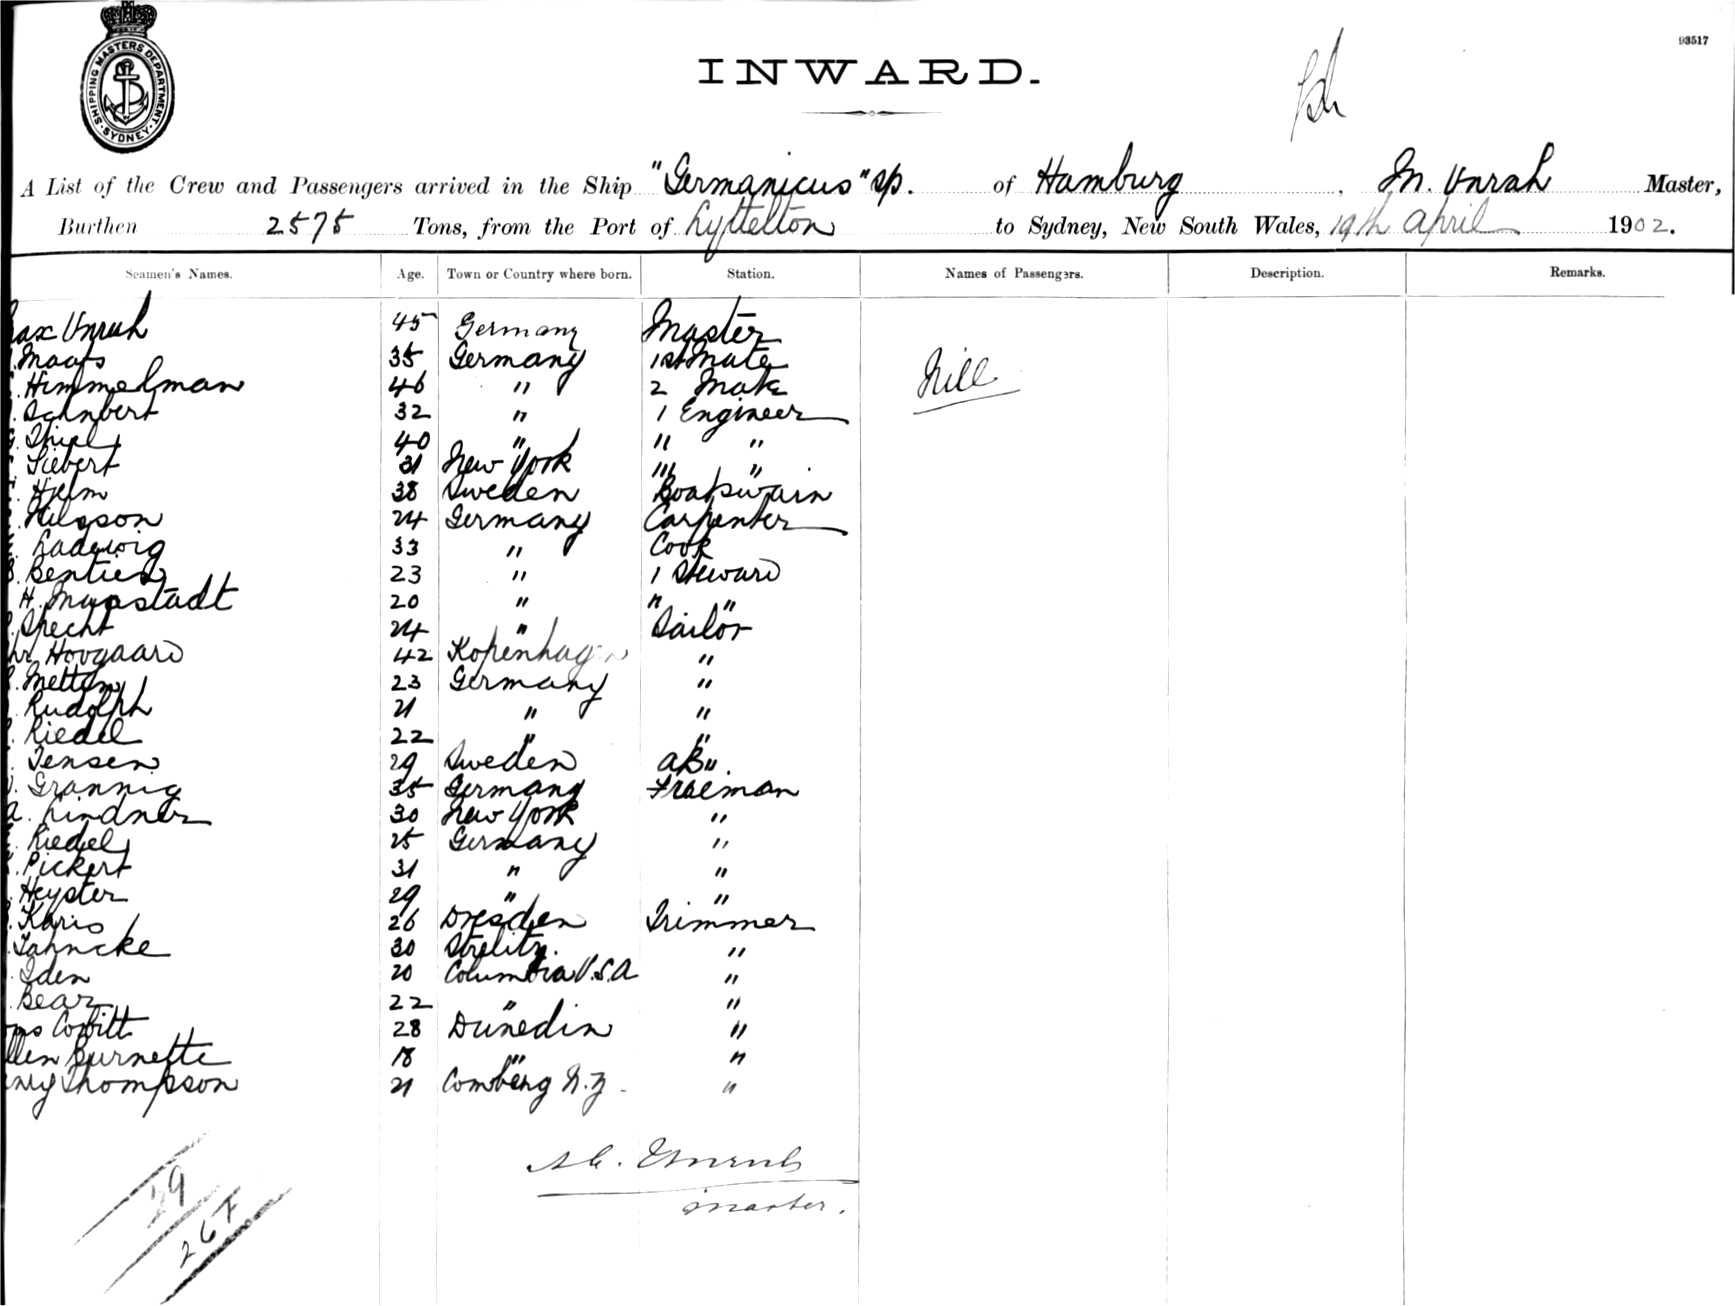 SHIPPING MASTERS DEPARTMENT. SYDNEY.
93517
INWARD.
A List of the Crew and Passengers arrived in the Ship "Germanicus" sp. of Hamburg, M. Unrah Master,
Burthen 2575 Tons, from the Port of Lyttelton to Sydney, New South Wales, 19th April 1902.
Seamen's Names. Age. Town or Country where born. Station. Names of Passengers. Description. Remarks.
ax Unruh 45 Germany Master
Maats 35 Germany 1st Mate
Himmelman 46 " 2 Mate Nill
Schubert 32 " 1 Engineer
Thiel 40 " " "
Siebert 31 New York "' "
Hjelm 38 Sweden Boatswain
Nilsson 24 Germany Carpenter
Ladewig 33 " Cook
Bentien 23 " 1 Steward
H. 20 " " "
Specht 24 " Sailor
Hovgaard 42 Kopenhagen "
23 Germany "
Rudolph 21 " "
Riedel 22 " "
Jensen 29 Sweden AB".
Grannig 35 Germany Fraeman
A. Lindner 30 New York "
Riedel 25 Germany "
Pickert 31 " "
Heyster 29 " "
Karis 26 Dresden Trimmer
Jahncke 30 Strelitz. "
Iden 20 Columbia U.S.A "
Bear 22 " "
Corbitt 28 Dunedin "
llen Burnette 18 " "
nry Thompson 21 N.Z. "
Unruh
master.
29
267